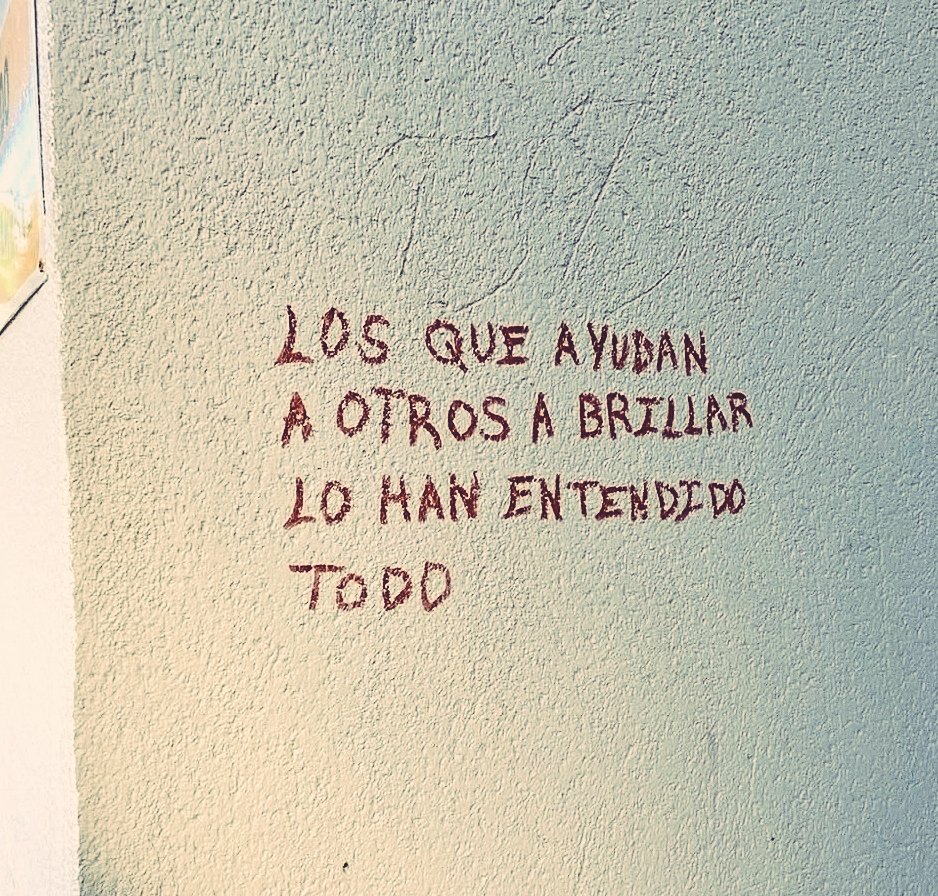 LOS QUE AYUDAN
A OTROS A BRILLAR
LO HAN ENTENDIDO
TODO